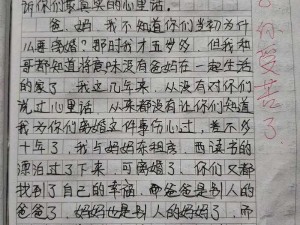 诉你们最真实的心里话。
爸、妈,我不知道你们当初为什
么要离婚?那时我才五岁多,但我和
哥都知道将意味没有爸妈在一起生活
的家了,我这几年来,从没有对你们
说过心里话,从来都没有让你们知道
我为你们离婚这件事伤心过,差不多
十年了,我与妈妈东租房,西读书的
漂泊过了下来,可离婚了,你们又都
找到了自己的幸福,而爸爸是别人的
爸爸了,妈妈也是别人的妈妈了,而
你受苦了